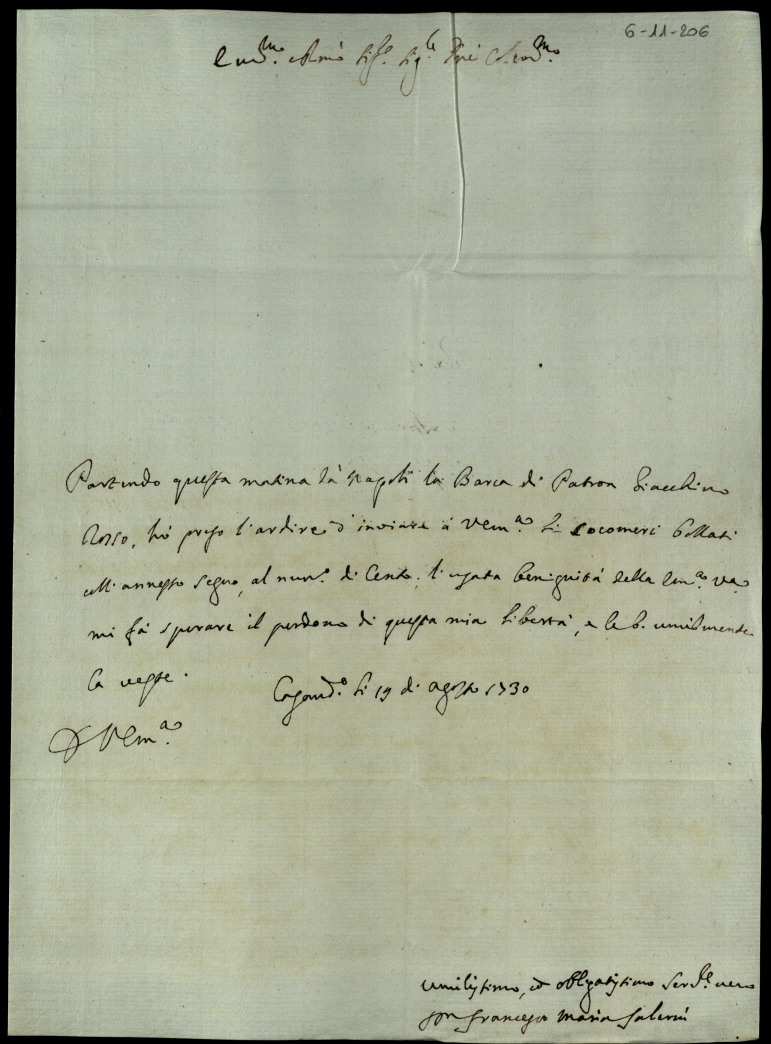 6-11-206
Em.mo Rmo Sig.r Sig.r Pne Colend.mo
Partendo questa matina dà Napoli la Barca di Patron Giacchino
Rosso, hò preso l'ardire d'inviare à V Em.za li cocomeri bollati
coll'annesso segno, al num.o di Cento; l'usata benignità della Em.za V.a
mi fà sperare il perdono di questa mia libertà, e le b. umilmente
la veste.
li 19 di agosto 1730
D V Em.za
umilissimo, ed obligatissimo ser.re vero
Francesco Maria Salerni